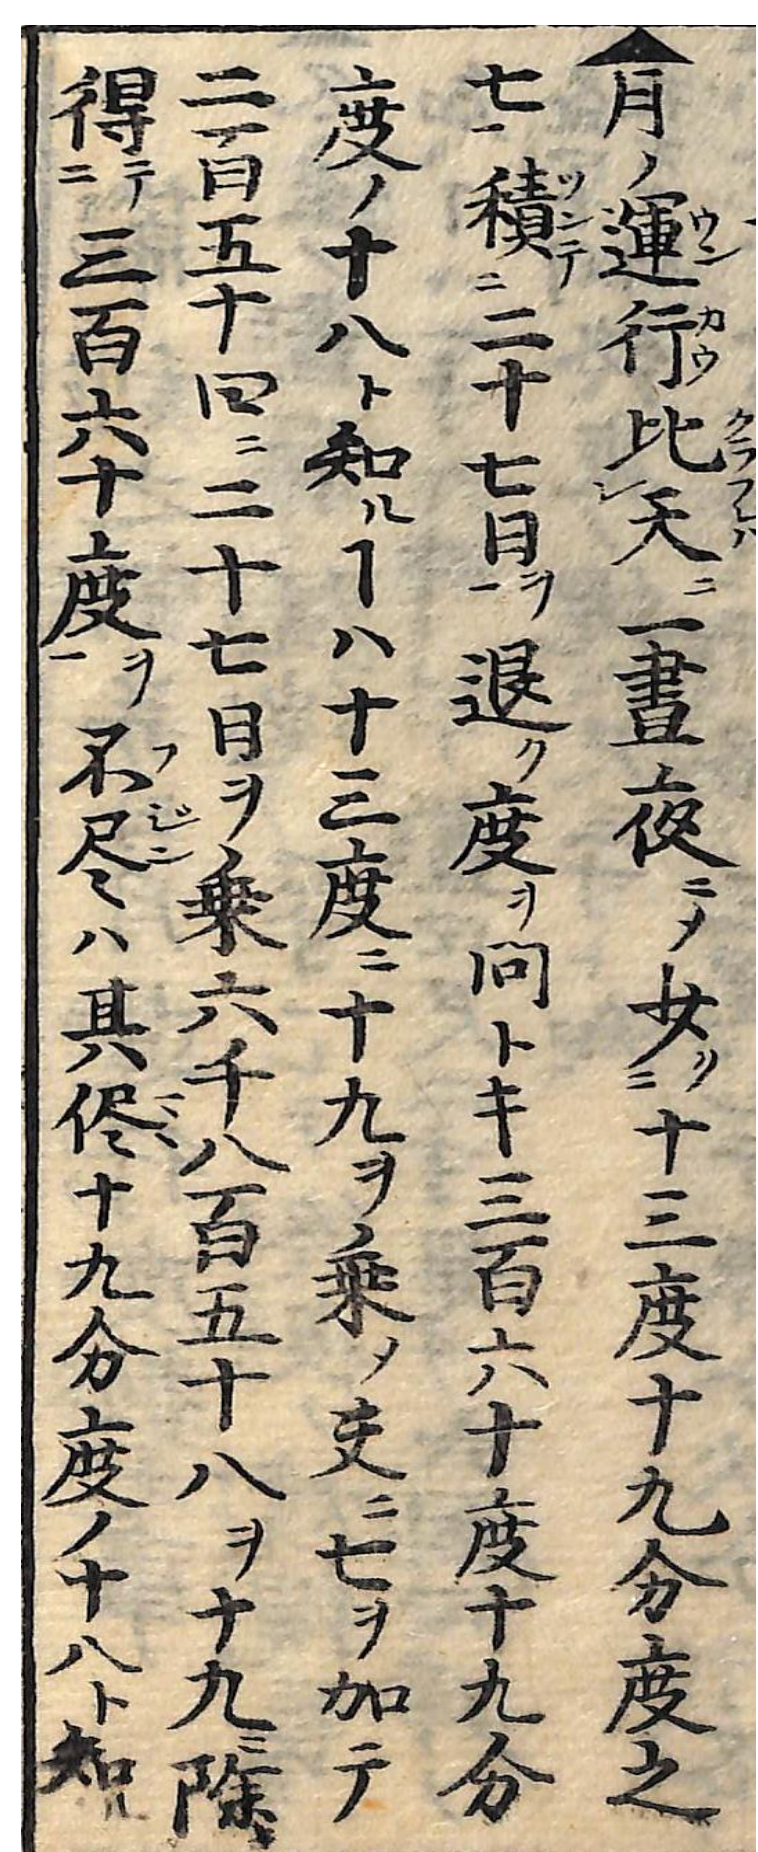 月ノ運行比レ天ニ一晝夜ニメ少クニ十三度十九分度之
七一積ニ二十七日一ヲ退ク度ヲ問トキ三百六十度十九分
度ノ十八ト知ルヿハ十三度ニ十九ヲ乗ノ㕝ニ七ヲ加テ
二百五十四ニ二十七日ヲ乗六千八百五十八ヲ十九ニ除
得テニ三百六十度一ヲ不尽ハ其侭十九分度ノ十八ト知ル
ウン
カウ
クラフレハ
ツンテ
フ
ジン